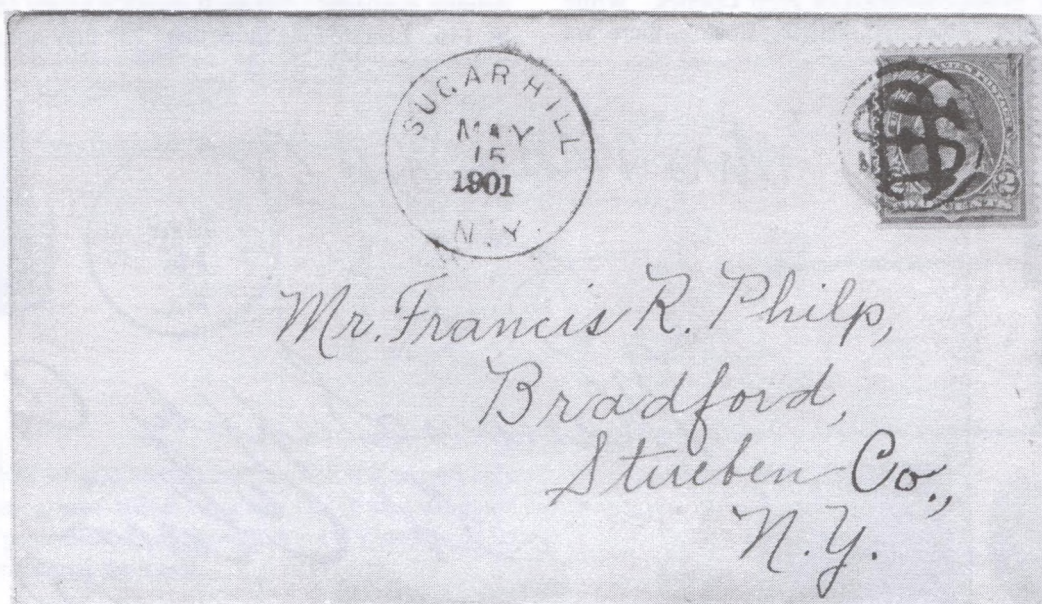 SUGAR HILL
MAY
15
1901
N.Y.
2
Mr. Francis R. Philp,
Bradford,
Stueben Co.,
N.Y.